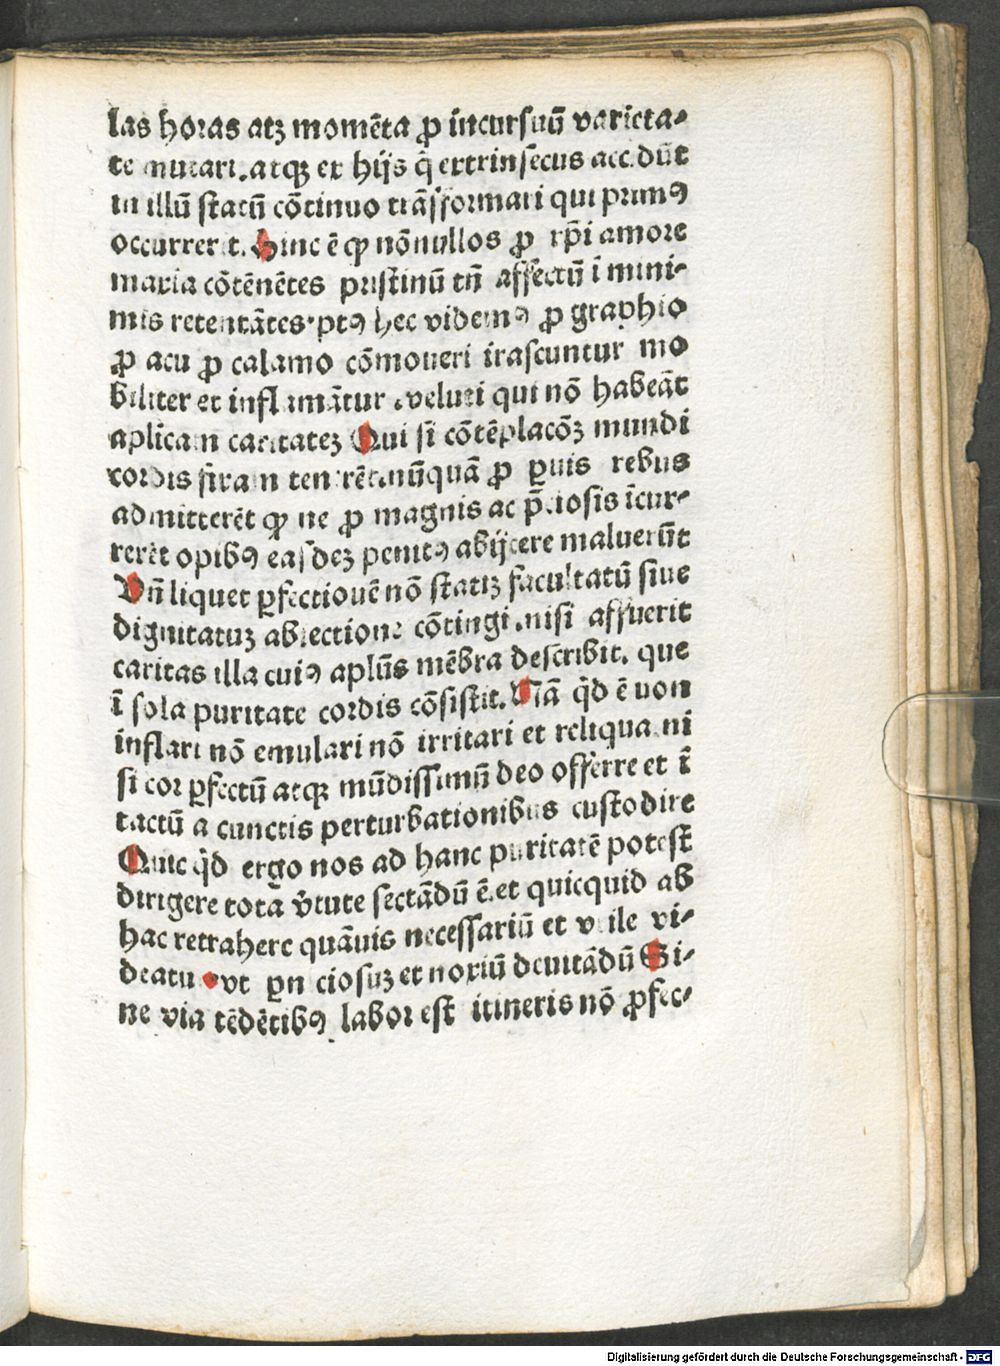 las horas atꝫ momēta ꝓ incursuū varieta⸗
te mutari.atqꝫ ex hijs q̄ extrinsecus accidūt
in illū statū cōtinuo trāsformari qui primꝰ
occurrerit. Hinc ē ꝙ nōnullos ꝓ xp̄i amore
maxīa cōtēnētes pristinū tn̄ affectū ī mini⸗
mis retentātes·ptꝰ hec videmꝰ ꝓ graphio
ꝓ acu ꝓ calamo cōmoueri irascuntur mo
biliter et inflāmātur .veluti qui nō habeāt
aplicam caritatez Qui si cōtēplacōꝫ mundi
cordis firam tenerēt.nūquā ꝓ ꝑuis rebus
admitterēt ꝙ ne ꝓ magnis ac p̄ciosis īcur⸗
rerēt opibꝰ easdeꝫ penitꝰ abijcere maluerūt
Vn̄ liquet ꝑfectionē nō statiꝫ facultatū siue
dignitatuꝫ abiectione cōtingi.nisi affuerit
caritas illa cuiꝰ aplūs mēbra describit. que
ī sola puritate cordis cōsistit. Nā q̄d ē non
inflari nō emulari nō irritari et reliqua ni
si cor ꝑfectū atqꝫ mūdissimū deo offerre et ī
tactū a cunctis perturbationibus custodire
Quic q̄d ergo nos ad hanc puritatē potest
dirigere tota v̄tute sectādū ē.et quicquid ab
hac retrahere quāuis necessariū et vtile vi⸗
deatur vt ꝑniciosuꝫ et noxiū deuitādū Si⸗
ne via tēdētibꝰ labor est itineris nō ꝓfec⸗
Digitalisierung gefördert durch die Deutsche Forschungsgemeinschaft - DFG